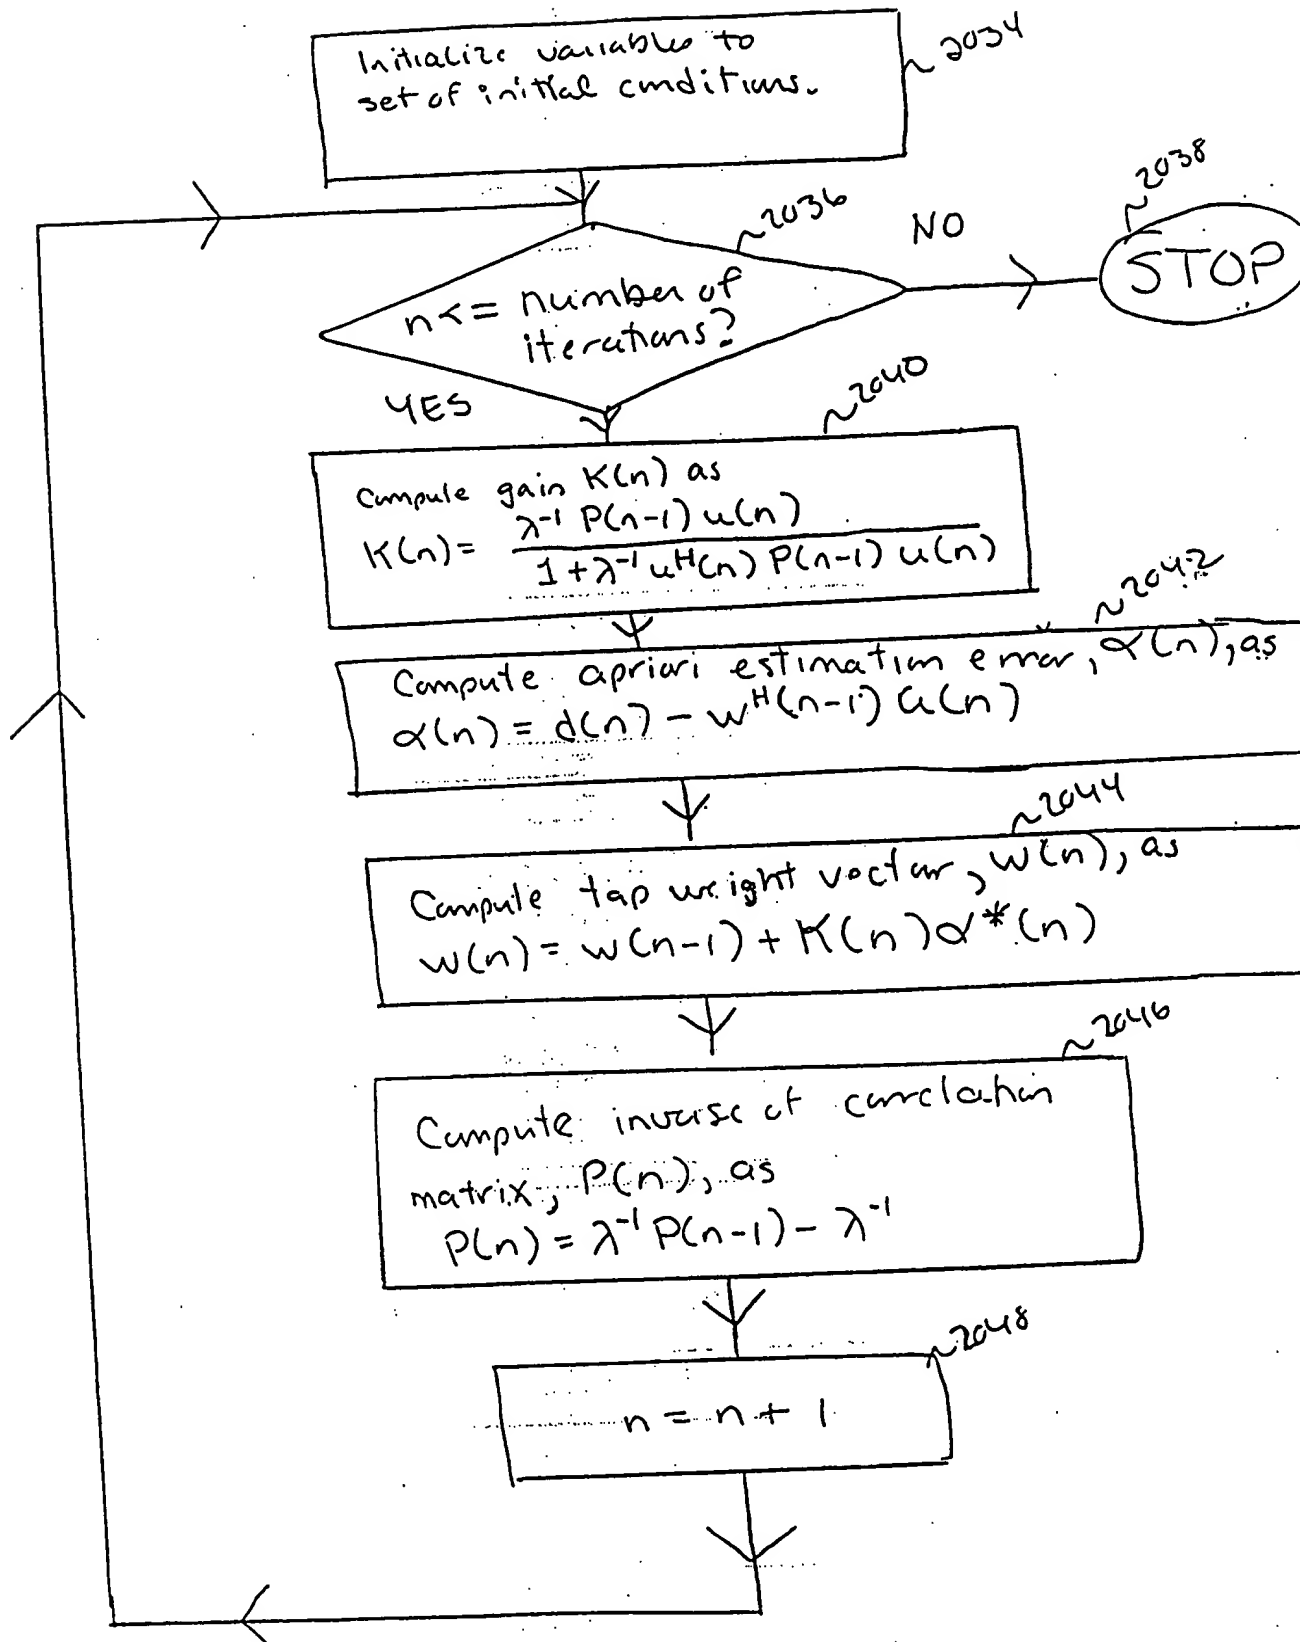 Initialize variables to
set of initial conditions.
2034
2036
NO
2038
STOP
n <= number of
iterations?
YES
2040
Compute gain K(n) as
K(n) = λ⁻¹ P(n-1) u(n)
1 + λ⁻¹ uᴴ(n) P(n-1) u(n)
2042
Compute apriori estimation error, α(n), as
α(n) = d(n) - wᴴ(n-1) u(n)
2044
Compute tap weight vector, w(n), as
w(n) = w(n-1) + K(n) α*(n)
2046
Compute inverse of correlation
matrix, P(n), as
P(n) = λ⁻¹ P(n-1) - λ⁻¹
2048
n = n + 1